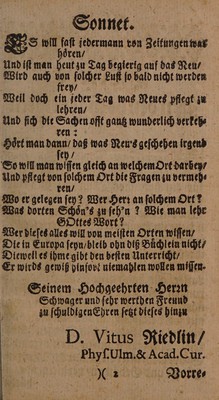 Sonnet.
ES will fast jedermann von Zeitungen was
hören/
Und ist man heut zu Tag begierig auf das Neu/
Wird auch von solcher Lust so bald nicht werden
frey/
Weil doch ein jeder Tag was Neues pflegt zu
lehren/
Und sich die Sachen offt gantz wunderlich verkeh-
ren:
Hört man dann/ daß was Neu's geschehen irgend
sey/
So will man wissen gleich an welchem Ort darbey/
Und pflegt von solchem Ort die Fragen zu vermeh-
ren/
Wo er gelegen sey? Wer Herr an solchem Ort?
Was dorten Schön's zu seh'n? Wie man lehr
GOttes Wort?
Wer dieses alles will von meisten Orten wissen/
Die in Europa seyn/ bleib ohn diß Büchlein nicht/
Dieweil es ihme gibt den besten Unterricht/
Er wirds gewiß hinfort niemahlen wollen missen.
Seinem Hochgeehrten Herrn
Schwager und sehr werthen Freund
zu schuldigen Ehren setzt dieses hinzu
D. Vitus Riedlin/
Phys. Ulm. & Acad. Cur.
)( 2 Vorre-